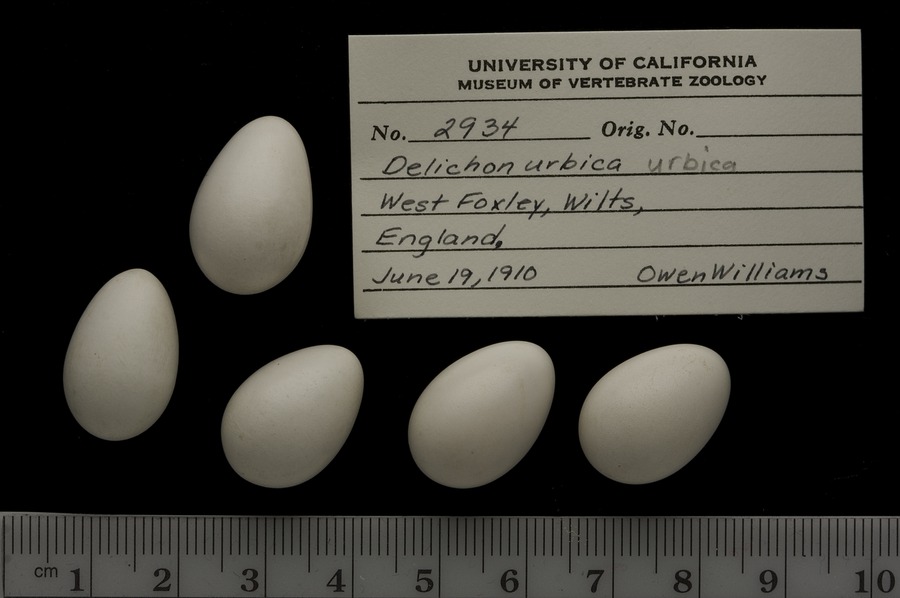 UNIVERSITY OF CALIFORNIA
MUSEUM OF VERTEBRATE ZOOLOGY
No. 2934 Orig. No.
Delichon urbica urbica
West Foxley, Wilts,
England.
June 19, 1910 Owen Williams
cm 1 2 3 4 5 6 7 8 9 10